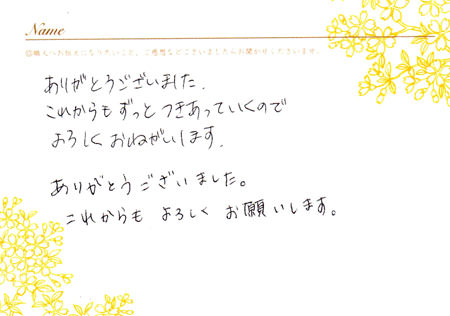 Name
職人へお伝えになりたいこと、ご感想などございましたらお聞かせくださいませ。
ありがとうございました.
これからもずっとつきあっていくので
よろしくおねがいします.
ありがとうございました。
これからも よろしく お願いします。